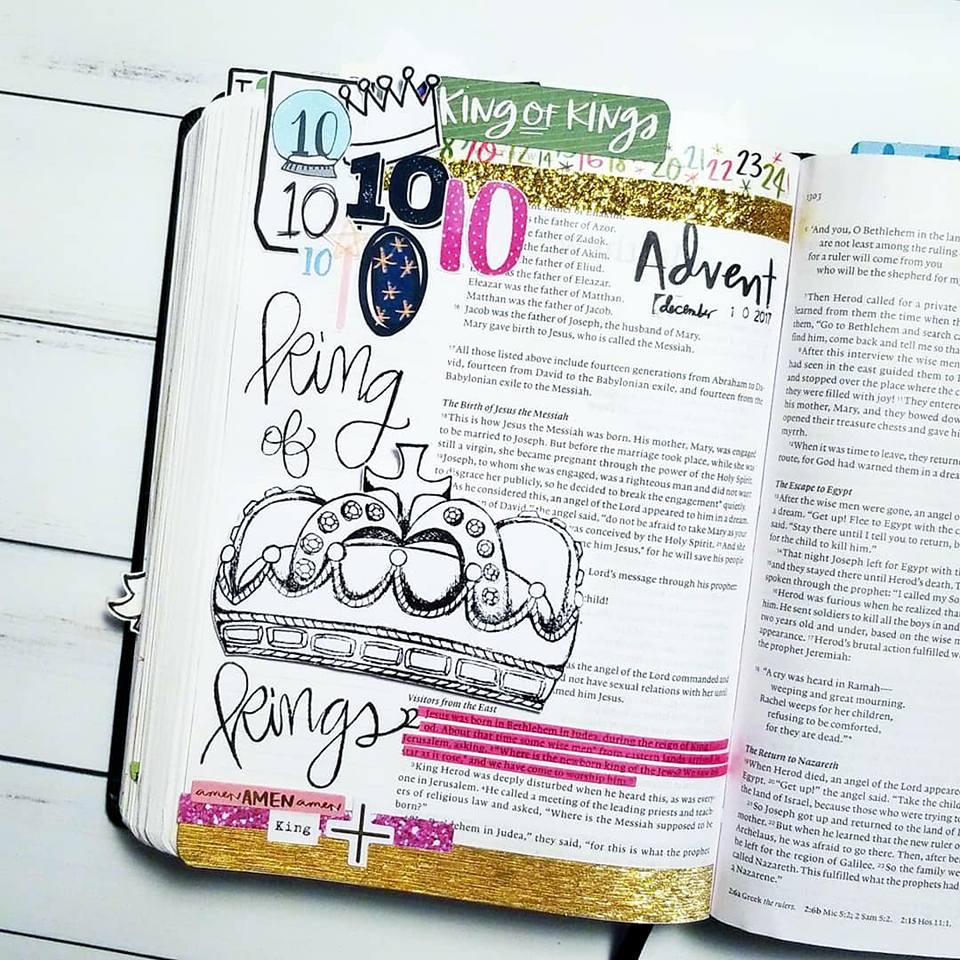 KING OF KINGS
10
10
10
10
10
8 10 12 14 16 18 20 21 22 23 24
s the father of Azor.
the father of Zadok.
e father of Akim.
the father of Eliud.
as the father of Eleazar.
Eleazar was the father of Matthan.
Matthan was the father of Jacob.
16 Jacob was the father of Joseph, the husband of Mary.
Mary gave birth to Jesus, who is called the Messiah.
Advent
december 10 2017
17 All those listed above include fourteen generations from Abraham to Da-
vid, fourteen from David to the Babylonian exile, and fourteen from the
Babylonian exile to the Messiah.
The Birth of Jesus the Messiah
18 This is how Jesus the Messiah was born. His mother, Mary, was engaged
to be married to Joseph. But before the marriage took place, while she was
still a virgin, she became pregnant through the power of the Holy Spirit.
19 Joseph, to whom she was engaged, was a righteous man and did not want
to disgrace her publicly, so he decided to break the engagement* quietly.
As he considered this, an angel of the Lord appeared to him in a dream.
n of David," the angel said, "do not be afraid to take Mary as your
was conceived by the Holy Spirit. 21 And she
e him Jesus,* for he will save his people
Lord's message through his prophet:
child!
as the angel of the Lord commanded and
not have sexual relations with her until
med him Jesus.
king
of
kings
Visitors from the East
2 Jesus was born in Bethlehem in Judea, during the reign of King
od. About that time some wise men* from eastern lands arrived in
Jerusalem, asking, 2 "Where is the newborn king of the Jews? We saw his
star as it rose,* and we have come to worship him."
3 King Herod was deeply disturbed when he heard this, as was every-
one in Jerusalem. 4 He called a meeting of the leading priests and teach-
ers of religious law and asked, "Where is the Messiah supposed to be
born?"
hem in Judea," they said, "for this is what the prophet
amen AMEN amen
King
1303
6 'And you, O Bethlehem in the lan
are not least among the ruling
for a ruler will come from you
who will be the shepherd for my
7 Then Herod called for a private
learned from them the time when th
them, "Go to Bethlehem and search ca
find him, come back and tell me so tha
9 After this interview the wise men
had seen in the east guided them to B
and stopped over the place where the c
they were filled with joy! 11 They entered
his mother, Mary, and they bowed dow
opened their treasure chests and gave hi
myrrh.
12 When it was time to leave, they returne
route, for God had warned them in a drea
The Escape to Egypt
13 After the wise men were gone, an angel o
a dream. "Get up! Flee to Egypt with the c
said. "Stay there until I tell you to return, b
for the child to kill him."
14 That night Joseph left for Egypt with th
15 and they stayed there until Herod's death. T
spoken through the prophet: "I called my So
16 Herod was furious when he realized that
him. He sent soldiers to kill all the boys in and
two years old and under, based on the wise m
appearance. 17 Herod's brutal action fulfilled w
the prophet Jeremiah:
18 "A cry was heard in Ramah—
weeping and great mourning.
Rachel weeps for her children,
refusing to be comforted,
for they are dead."*
The Return to Nazareth
19 When Herod died, an angel of the Lord appeare
Egypt. 20 "Get up!" the angel said. "Take the child
the land of Israel, because those who were trying to
21 So Joseph got up and returned to the land of I
mother. 22 But when he learned that the new ruler o
Archelaus, he was afraid to go there. Then, after be
he left for the region of Galilee. 23 So the family we
called Nazareth. This fulfilled what the prophets had
a Nazarene."
2:6a Greek the rulers. 2:6b Mic 5:2; 2 Sam 5:2. 2:15 Hos 11:1.